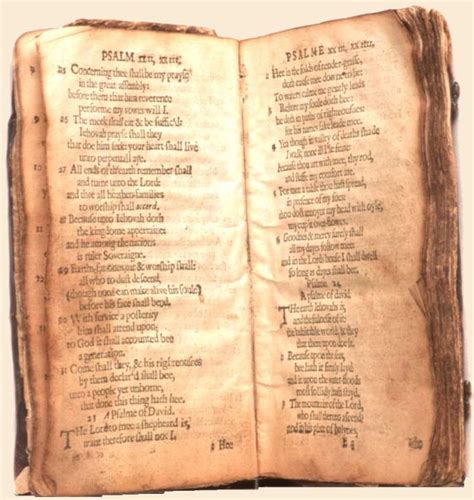 PSALM xxii, xxiii.
25 Concerning thee shall be my prayse
in the great assembly:
before them that him reverence
performe my vowes will I.
26 The meek shall eat & be suffic'd:
Iehovah prayse shall they
that doe him seek: your heart shall live
unto perpetuall aye.
27 All ends of th'earth remember shall
and turne unto the Lord:
and thee all heathen-families
to worship shall accord,
28 Because unto Iehovah doth
the kingdome appertaine:
and he among the nations
is ruler Soveraigne.
29 Earths-fat-ones, eat & worship shall:
all who to dust descend,
(though none can make alive his soule)
before his face shall bend.
30 With service a posterity
him shall attend upon;
to God it shall accounted bee
a generation.
31 Come shall they, & his righteousnes
by them declar'd shall bee,
unto a people yet unborne,
that done this thing hath hee.
23 A Psalme of David.
The Lord to mee a shepheard is,
want therefore shall not I.
2 Hee
PSALME xxiii, xxiiii.
2 Hee in the folds of tender-grasse,
doth cause mee downe to lie:
To waters calme me gently leads
3 Restore my soule doth hee:
he doth in paths of righteousnes:
for his names sake leade mee.
4 Yea though in valley of deaths shade
I walk, none ill I'le feare:
because thou art with mee, thy rod,
and staffe my comfort are.
5 For mee a table thou hast spread,
in presence of my foes:
thou dost annoynt my head with oyle,
my cup it over-flowes.
6 Goodnes & mercy surely shall
all my dayes follow mee:
and in the Lords house I shall dwell
so long as dayes shall bee.
Psalme 24
A psalme of david.
The earth Iehovahs is,
and the fulnesse of it:
the habitable world, & they
that there upon doe sit.
2 Because upon the seas,
hee hath it firmly layd:
and it upon the water-floods
most sollidly hath stayd.
3 The mountaine of the Lord,
who shall thereto ascend?
and in his place of holynes,
E 4